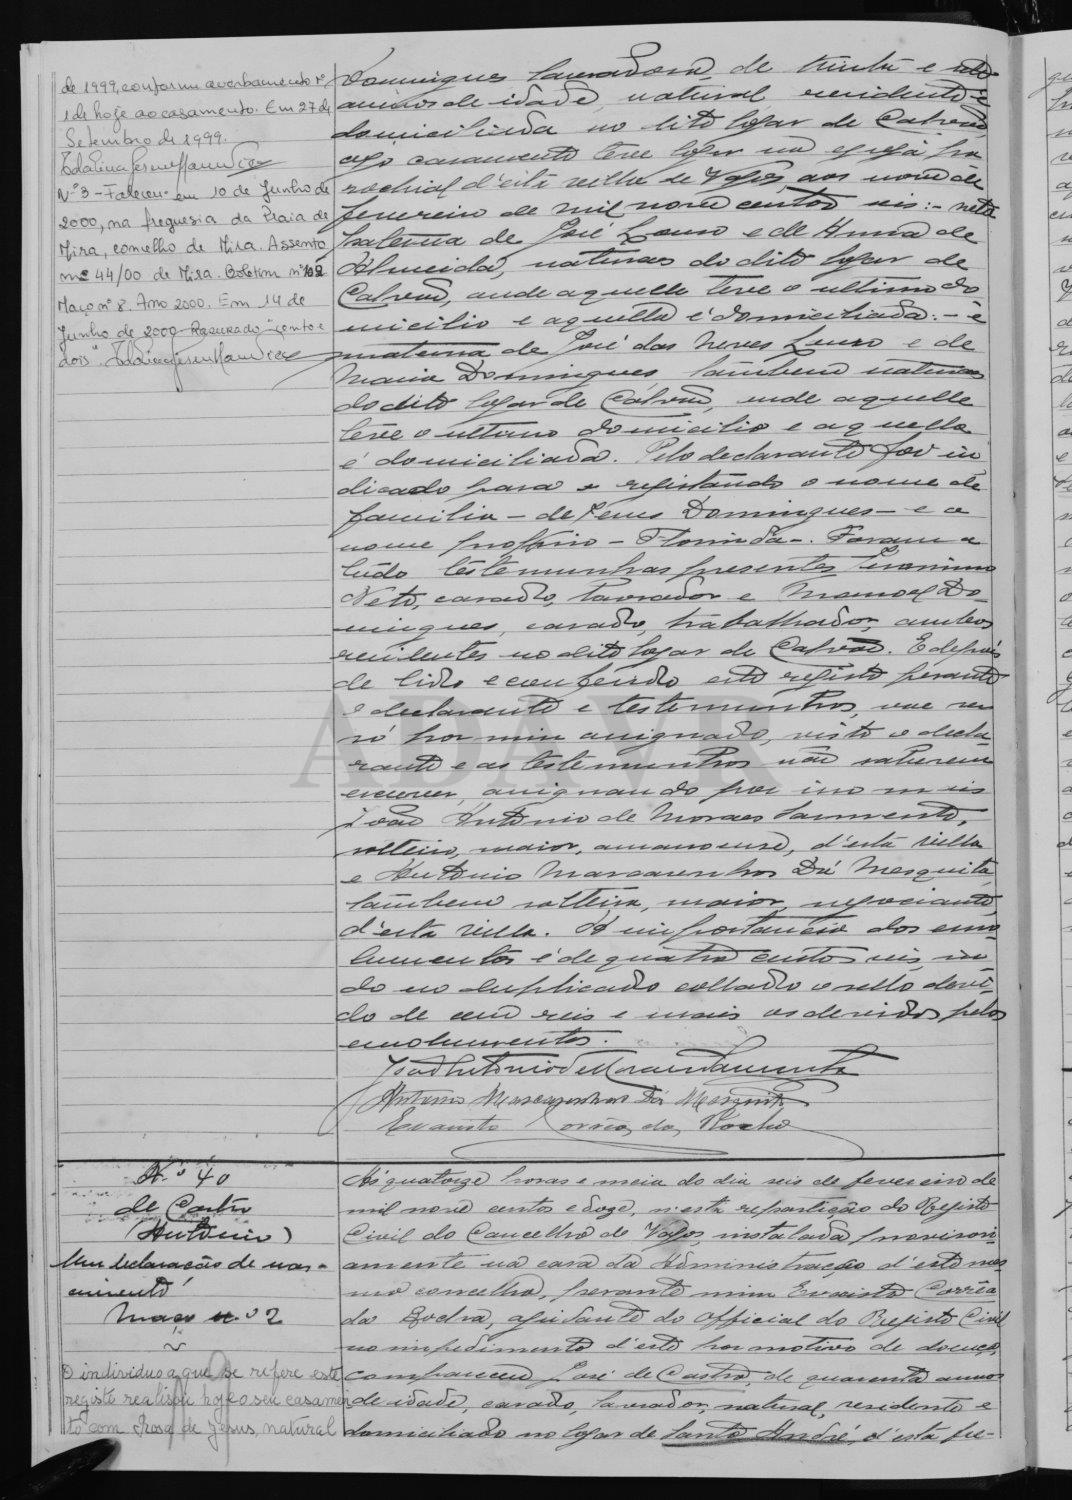 de 1999, conforme averbamento nº
1 de hoje ao casamento. Em 27 de
Setembro de 1999.
Nº 3 - Faleceu em 10 de Junho de
2000, na freguesia da Praia de
Mira, concelho de Mira. Assento
nº 44/00 de Mira. Boletim nº 102
Maço nº 8. Ano 2000. Em 14 de
Junho de 2000. Rasurado "cento e
dois".
Domingues lavradora, de trinta e
annos de idade, natural, residente e
domiciliada no dito logar de Calvão,
cujo casamento teve logar na egreja pa
rochial d'esta villa de Vagos aos nove de
fevereiro de mil nove centos seis: - neta
paterna de José Louro e de Anna de
Almeida, naturaes do dito logar de
Calvão, onde aquelle teve o ultimo do
micilio e aquella é domiciliada: - e
materna de José das Neves Louro e de
Maria Domingues tambem naturaes
do dito logar de Calvão, onde aquelle
teve o ultimo domicilio e aquella
é domiciliada. Pelo declarante foi in
dicado para o registando o nome de
familia - de Jesus Domingues - e o
nome proprio - Florinda -. Foram a
tudo testemunhas presentes Jeronimo
Neto, casado, lavrador e Manoel Do-
mingues, casado, trabalhador, ambos
residentes no dito logar de Calvão. E depois
de lido e conferido este registo perante
o declarante e testemunhas, vae ser
só por mim assignado, visto o decla
rante e as testemunhas não saberem
escrever, assignando por
João Antonio de Moraes Sarmento,
solteiro, maior, amanuense, d'esta villa
e Antonio Mascarenhas Da Mesquita
tambem solteiro, maior, negociante,
d'esta villa. A importancia dos emo
lumentos é de quatro centos reis, in
do no duplicado collado o sello devi
do de cem reis e mais os devidos pelos
emolumentos.
João Antonio de Moraes Sarmento
Antonio Mascarenhas Da Mesquita
Evaristo Corrêa da Rocha
ADAVR
N.º 40
de Castro
(Antonio)
Um declaração de nas-
cimento
Maço n.º 2
O individuo a que se refere este
registo realisou hoje o seu casamen
to com Rosa de Jesus, natural
Ás quatorze horas e meia do dia seis de fevereiro de
mil nove centos e doze, n'esta repartição do Registo
Civil do Concelho de Vagos, installada provisori-
amente na casa da Administração d'este mes
mo concelho, perante mim Evaristo Corrêa
da Rocha, ajudante do Official do Registo Civil
no impedimento d'este por motivo de doença,
compareceu José de Castro, de quarenta annos
de idade, casado, lavrador, natural, residente e
domiciliado no logar de Santo André, d'esta fre-